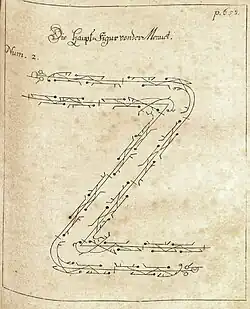 p. 652.
Die Haupt-Figur von der Menuet.
Num. 2.